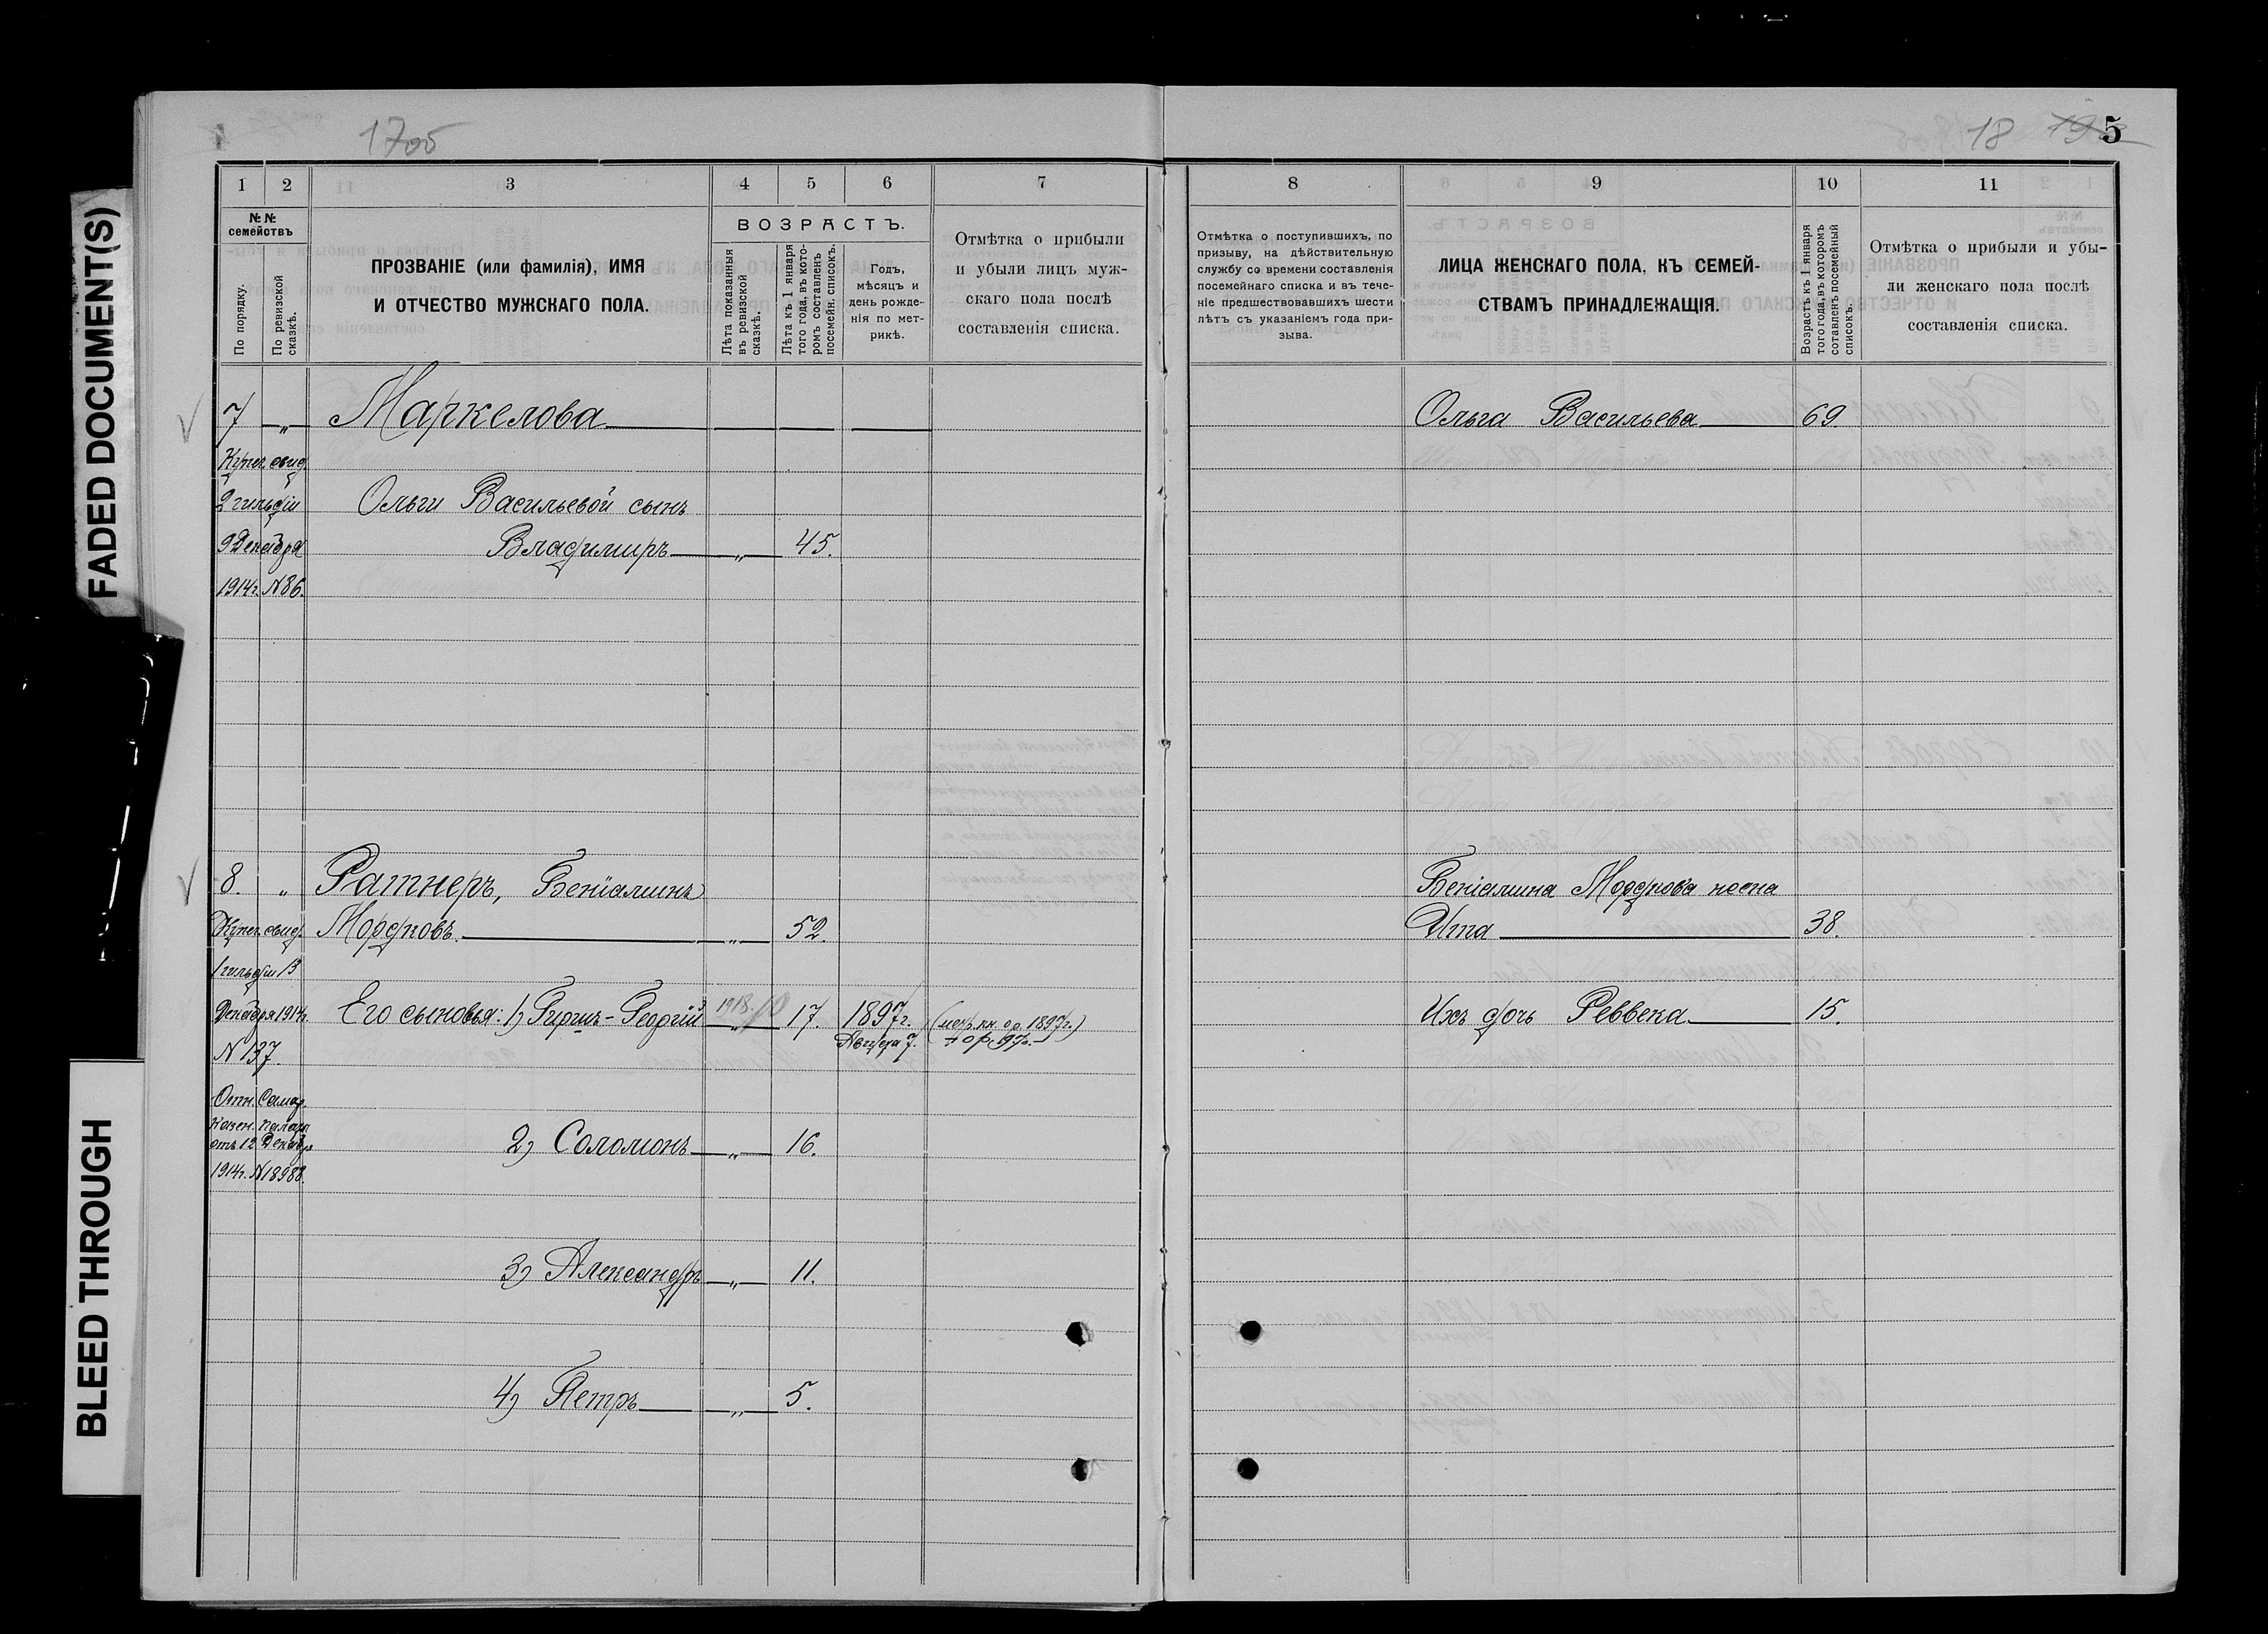 FADED DOCUMENT(S)
BLEED THROUGH
1705
18
5
1 2 3 4 5 6 7
№№ семействъ
По порядку.
По ревизской сказкѣ.
ПРОЗВАНІЕ (или фамилія), ИМЯ
И ОТЧЕСТВО МУЖСКАГО ПОЛА.
ВОЗРАСТЪ.
Лѣта показанныя
въ ревизской
сказкѣ.
Лѣта къ 1 января
того года, въ кото-
ромъ составленъ
посемейн. списокъ.
Годъ,
мѣсяцъ и
день рожде-
нія по мет-
рикѣ.
Отмѣтка о прибыли
и убыли лицъ муж-
скаго пола послѣ
составленія списка.
7 „ Маркелова
Купеч. свид.
2 гильдіи Ольги Васильевой сынъ
9 Декабря Владимиръ „ 45.
1914г. N86.
8. „ Ратнеръ, Беніаминъ
Купеч. свид. Мордковъ. „ 52.
1 гильдіи 13
Декабря 1914г. Его сыновья: 1) Гиршъ-Георгій 1918 „ 17. 1897г. (метр. кн. о р. 1897г.)
Августа 7.
N 137.
Отн. Самар.
Казен. палаты
отъ 12 Декабр 2) Соломонъ „ 16.
1914г. N18988.
3) Александръ „ 11.
4) Петръ „ 5.
8 9 10 11
Отмѣтка о поступившихъ, по
призыву, на дѣйствительную
службу со времени составленія
посемейнаго списка и въ тече-
ніе предшествовавшихъ шести
лѣтъ съ указаніемъ года при-
зыва.
ЛИЦА ЖЕНСКАГО ПОЛА, КЪ СЕМЕЙ-
СТВАМЪ ПРИНАДЛЕЖАЩІЯ.
Возрастъ къ 1 января
того года, въ которомъ
составленъ посемейный
списокъ.
Отмѣтка о прибыли и убы-
ли женскаго пола послѣ
составленія списка.
Ольга Васильева 69
Беніамина Мордкова жена
Ита 38.
Ихъ дочь Реввека 15.